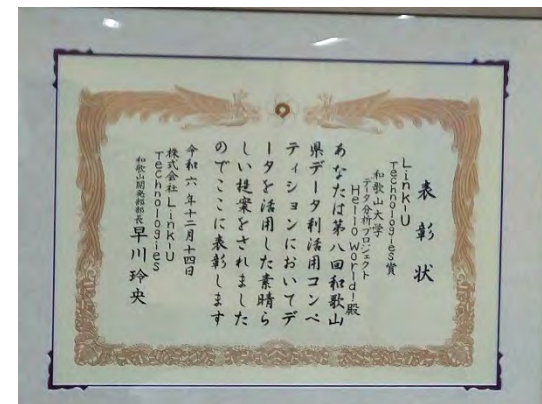 表彰状
LinkU Technologies賞
和歌山大学
データ分析プロジェクト
Hello World!殿
あなたは第八回和歌山
県データ利活用コンペ
ティションにおいてデ
ータを活用した素晴ら
しい提案をされました
のでここに表彰します
令和六年十二月十四日
株式会社LinkU Technologies
和歌山開発部部長 早川 玲央